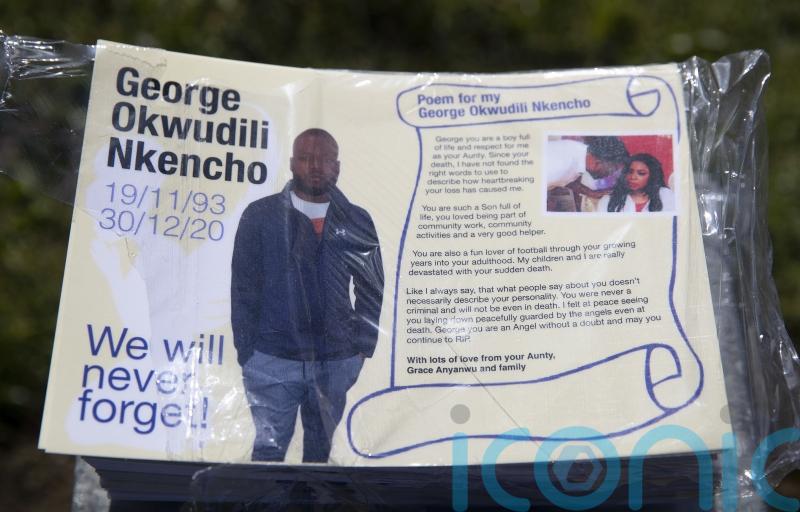 George
Okwudili
Nkencho
19/11/93
30/12/20
We will
never
forget!
Poem for my
George Okwudili Nkencho
George you are a boy full
of life and respect for me
as your Aunty. Since your
death, I have not found the
right words to use to
describe how heartbreaking
your loss has caused me.
You are such a Son full of
life, you loved being part of
community work, community
activities and a very good helper.
You are also a fun lover of football through your growing
years into your adulthood. My children and I are really
devastated with your sudden death.
Like I always say, that what people say about you doesn't
necessarily describe your personality. You were never a
criminal and will not be even in death. I felt at peace seeing
you laying down peacefully guarded by the angels even at
death. George you are an Angel without a doubt and may you
continue to RIP.
With lots of love from your Aunty,
Grace Anyanwu and family
iconic